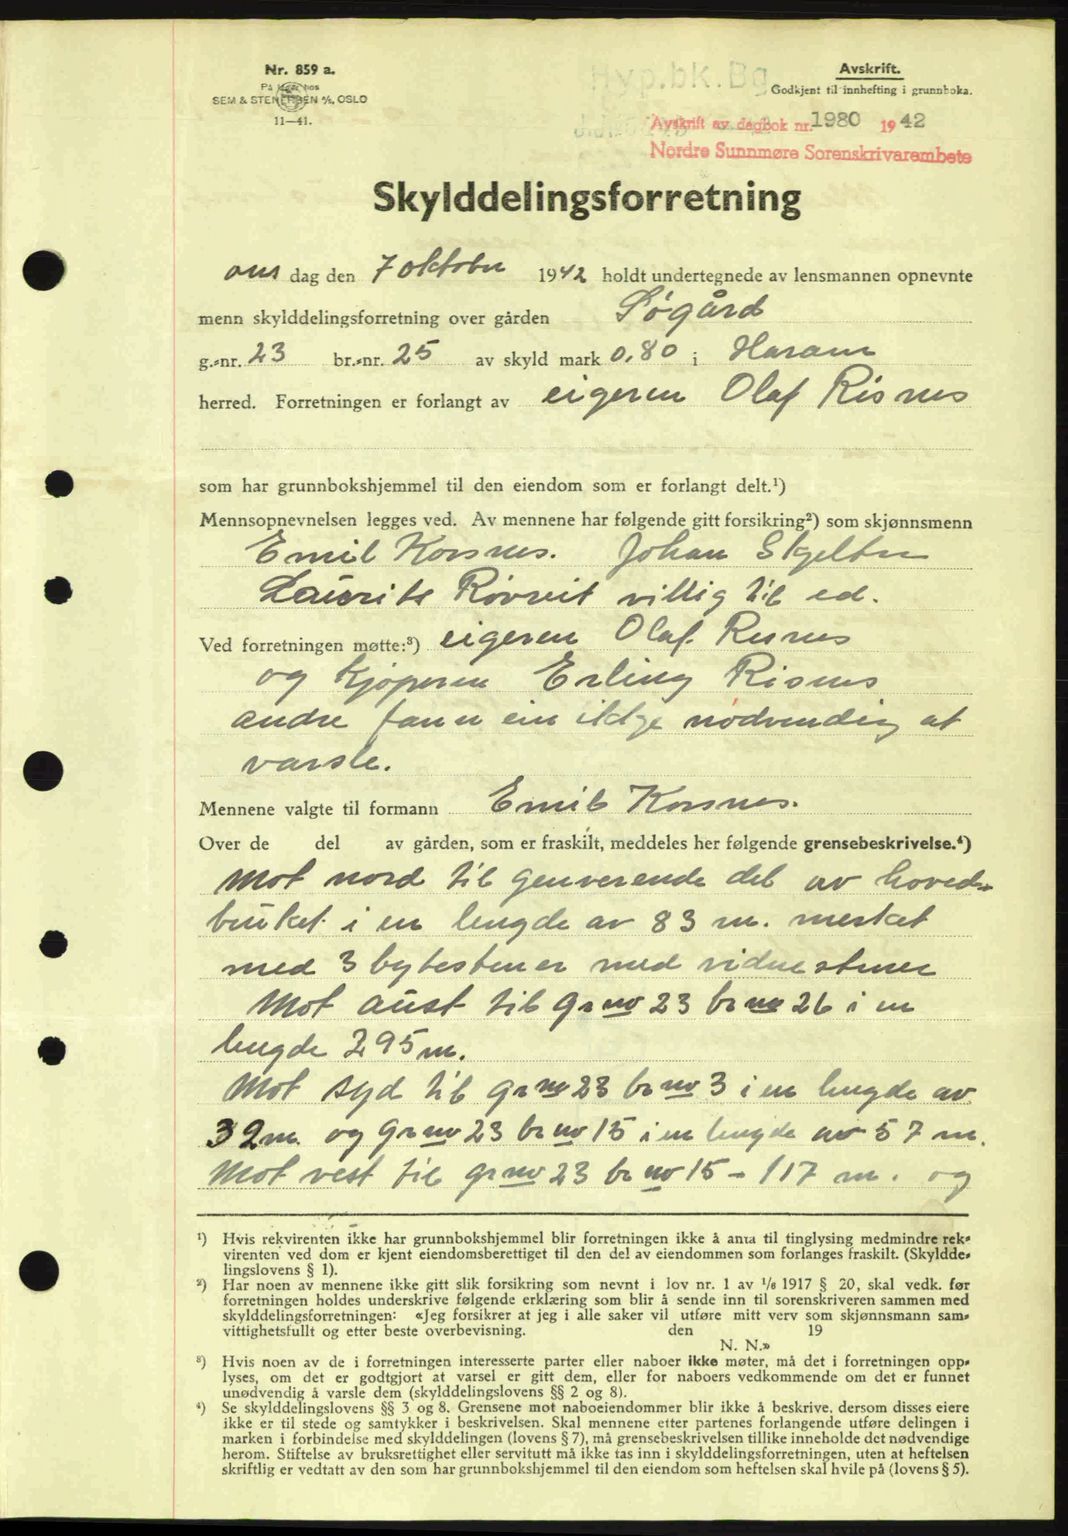 Nr. 859 a.
På lager hos
SEM & STENERSEN A/S, OSLO
11—41.
Hyp.bk. Bg
Avskrift.
Godkjent til innhefting i grunnboka.
Avskrift av dagbok nr. 1980 1942
Nordre Sunnmøre Sorenskrivarembete
Skylddelingsforretning
ons dag den 7 oktober 1942 holdt undertegnede av lensmannen opnevnte
menn skylddelingsforretning over gården Søgård
g.-nr. 23 br.-nr. 25 av skyld mark 0,80 i Haram
herred. Forretningen er forlangt av eigeren Olaf Risnes
som har grunnbokshjemmel til den eiendom som er forlangt delt.¹)
Mennsopnevnelsen legges ved. Av mennene har følgende gitt forsikring²) som skjønnsmenn
Emil Korsnes. Johan Skjelten
Laurits Rövreit villig til ed.
Ved forretningen møtte:³) eigeren Olaf Risnes
og kjöperen Erling Risnes
andre fann ein ikkje nödvendig at
varsle.
Mennene valgte til formann Emil Korsnes.
Over de del av gården, som er fraskilt, meddeles her følgende grensebeskrivelse.⁴)
Mot nord til genverende del av hoved-
bruket i en lengde av 83 m. merket
med 3 bytestener med vidnestener
Mot aust til gr no 23 br no 26 i en
lengde 295 m.
Mot syd til gr no 23 br no 3 i en lengde av
32 m. og gr no 23 br no 15 i en lengde av 57 m.
Mot vest til gr no 23 br no 15 - 117 m. og
¹) Hvis rekvirenten ikke har grunnbokshjemmel blir forretningen ikke å anta til tinglysing medmindre rek-
virenten ved dom er kjent eiendomsberettiget til den del av eiendommen som forlanges fraskilt. (Skyldde-
lingslovens § 1).
²) Har noen av mennene ikke gitt slik forsikring som nevnt i lov nr. 1 av 1/6 1917 § 20, skal vedk. før
forretningen holdes underskrive følgende erklæring som blir å sende inn til sorenskriveren sammen med
skylddelingsforretningen: «Jeg forsikrer at jeg i alle saker vil utføre mitt verv som skjønnsmann sam-
vittighetsfullt og etter beste overbevisning. den 19
N. N.»
³) Hvis noen av de i forretningen interesserte parter eller naboer ikke møter, må det i forretningen opp-
lyses, om det er godtgjort at varsel er gitt dem, eller for naboers vedkommende om det er funnet
unødvendig å varsle dem (skylddelingslovens §§ 2 og 8).
⁴) Se skylddelingslovens §§ 3 og 8. Grensene mot naboeiendommer blir ikke å beskrive, dersom disses eiere
ikke er til stede og samtykker i beskrivelsen. Skal mennene etter partenes forlangende utføre delingen i
marken i forbindelse med skylddelingen (lovens § 7), må grensebeskrivelsen tillike inneholde det nødvendige
herom. Stiftelse av bruksrettighet eller servitutt må ikke tas inn i skylddelingsforretningen, uten at heftelsen
skriftlig er vedtatt av den som har grunnbokshjemmel til den eiendom som heftelsen skal hvile på (lovens § 5).